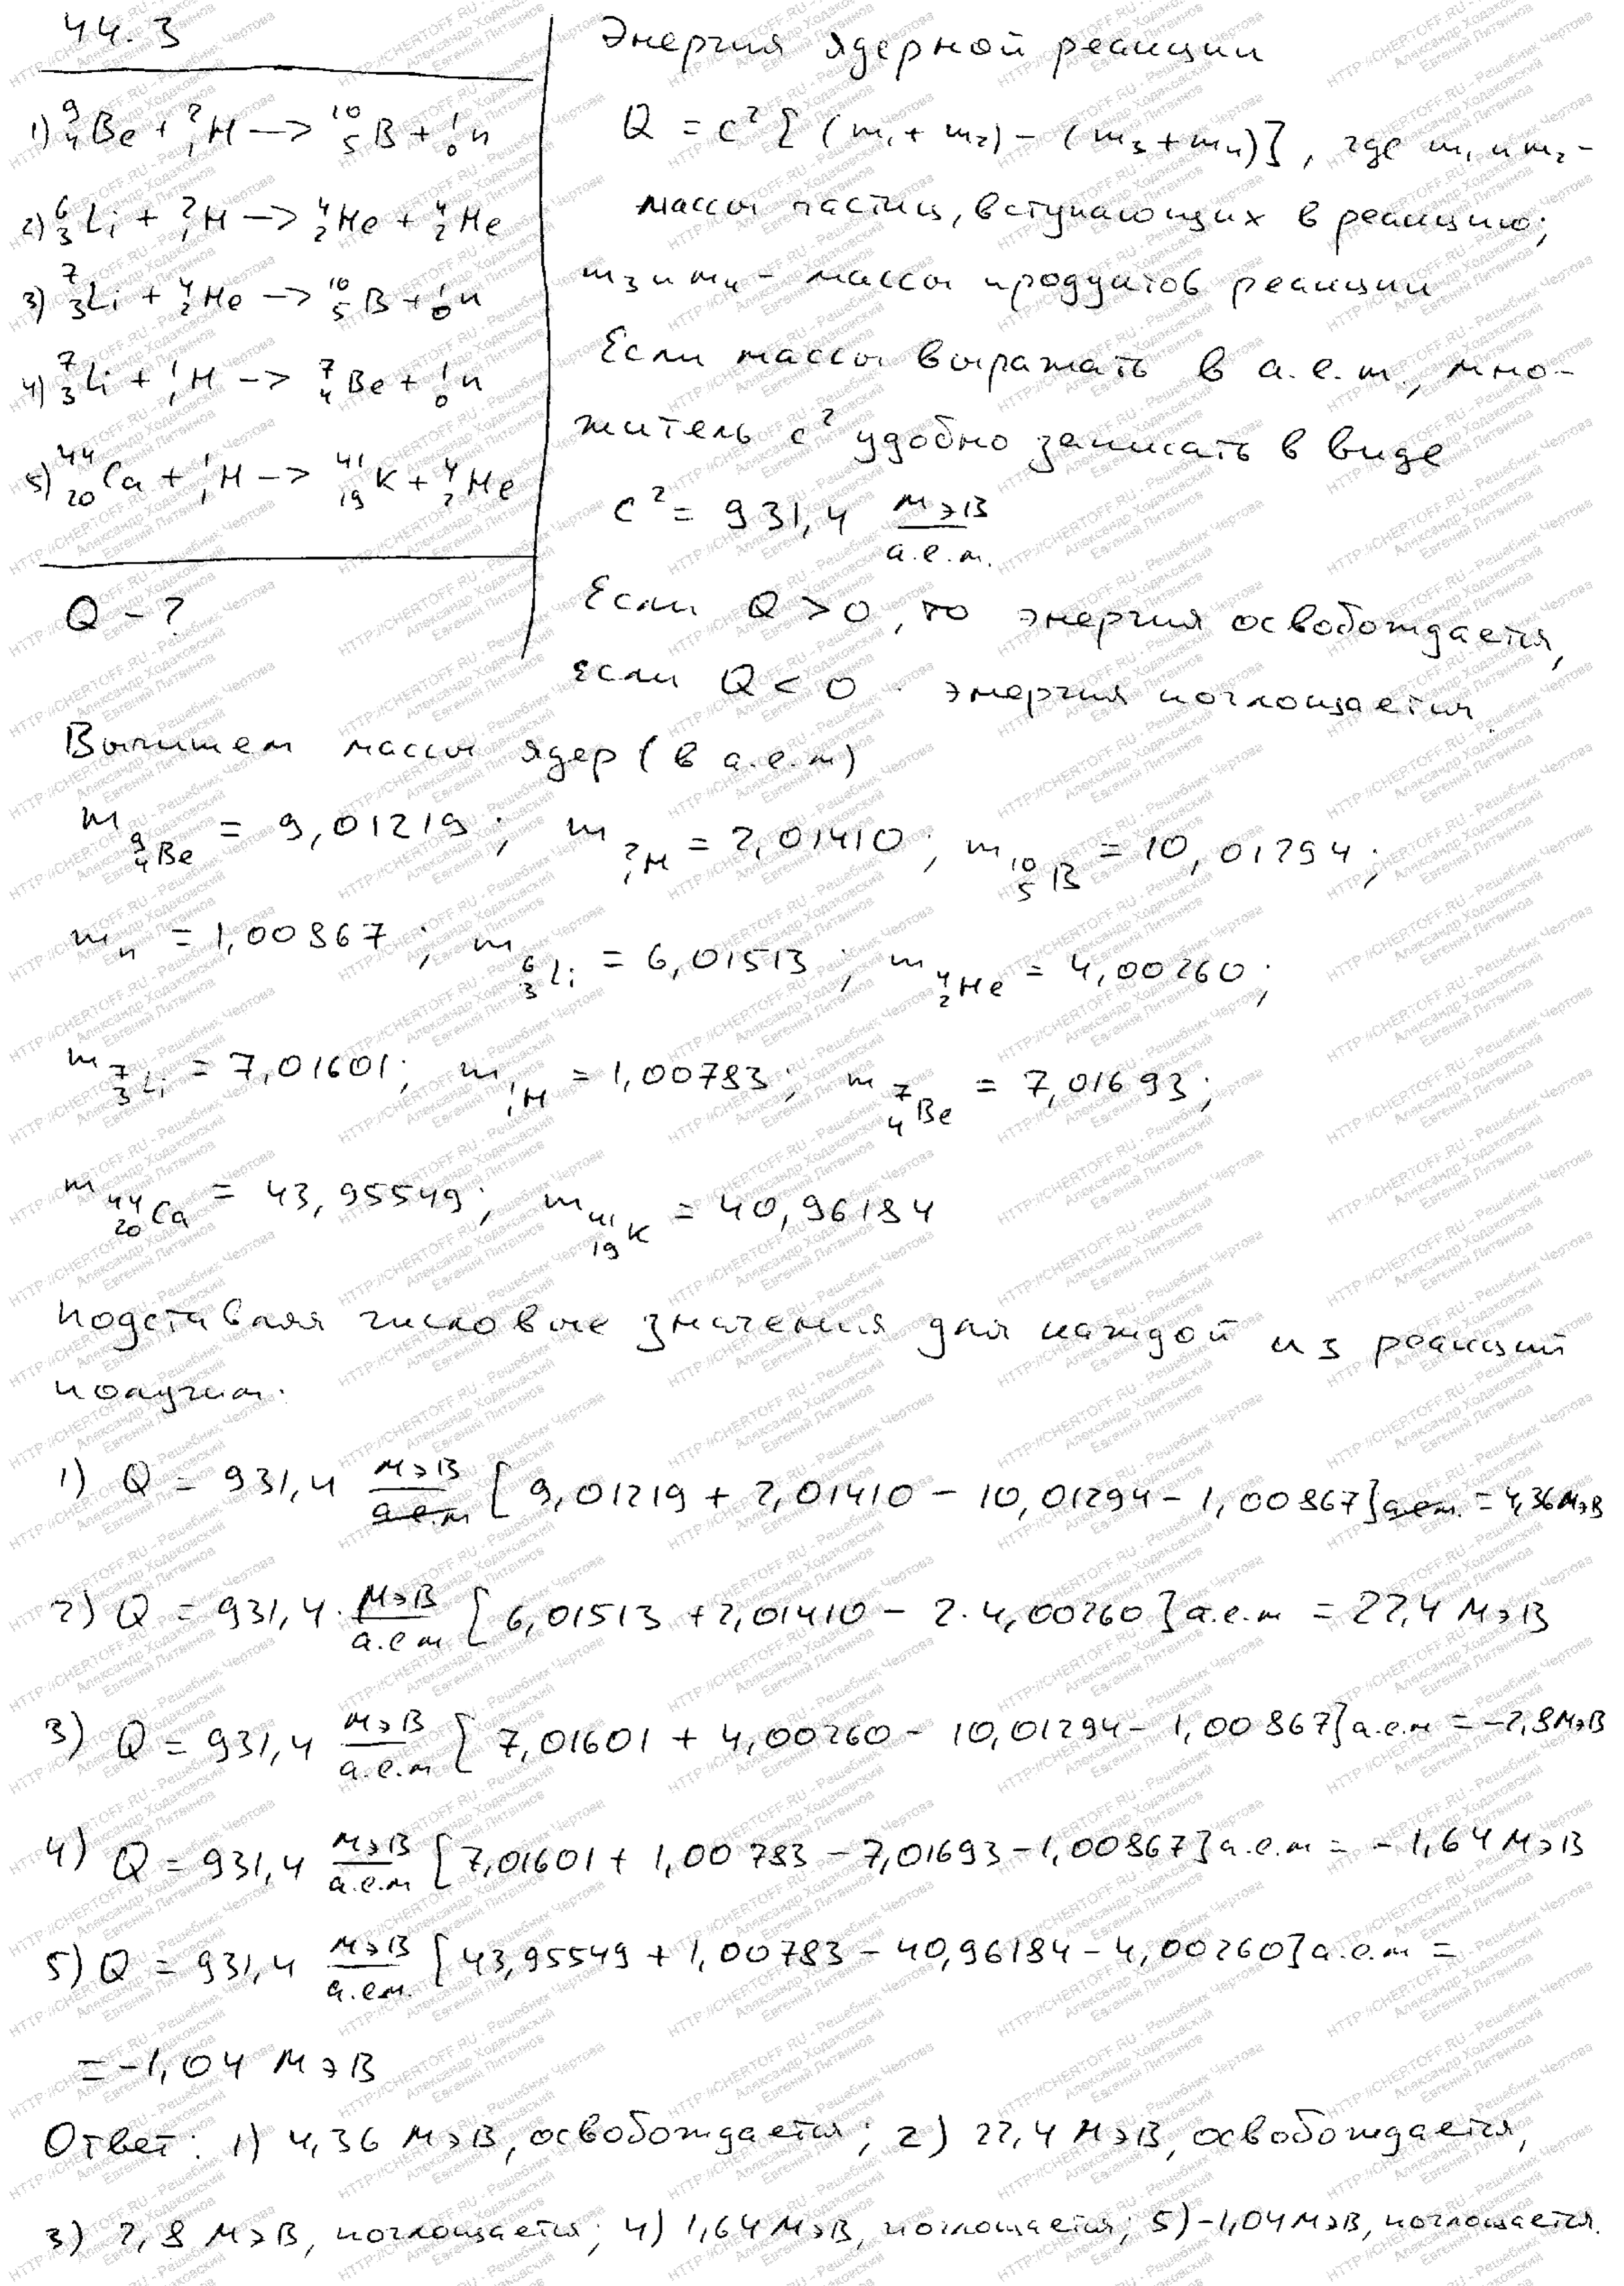 44.3
1) ⁹₄Be + ²₁H —> ¹⁰₅B + ¹₀n
2) ⁶₃Li + ²₁H —> ⁴₂He + ⁴₂He
3) ⁷₃Li + ⁴₂He —> ¹⁰₅B + ¹₀n
4) ⁷₃Li + ¹₁H —> ⁷₄Be + ¹₀n
5) ⁴⁴₂₀Ca + ¹₁H —> ⁴¹₁₉K + ⁴₂He
Q - ?
Энергия ядерной реакции
Q = c² [(m₁ + m₂) - (m₃ + m₄)], где m₁ и m₂ -
массы частиц, вступающих в реакцию;
m₃ и m₄ - массы продуктов реакции
Если массы выражать в а.е.м., мно-
житель c² удобно записать в виде
c² = 931,4 МэВ/а.е.м.
Если Q > 0, то энергия освобождается,
если Q < 0 - энергия поглощается.
Выпишем массы ядер (в а.е.м)
m ⁹₄Be = 9,01219; m ²₁H = 2,01410; m ¹⁰₅B = 10,01294;
mₙ = 1,00867; m ⁶₃Li = 6,01513; m ⁴₂He = 4,00260;
m ⁷₃Li = 7,01601; m ¹₁H = 1,00783; m ⁷₄Be = 7,01693;
m ⁴⁴₂₀Ca = 43,95549; m ⁴¹₁₉K = 40,96184
Подставляя числовые значения для каждой из реакций
получим:
1) Q = 931,4 МэВ/а.е.м [9,01219 + 2,01410 - 10,01294 - 1,00867] а.е.м. = 4,36 МэВ
2) Q = 931,4 · МэВ/а.е.м [6,01513 + 2,01410 - 2·4,00260] а.е.м = 22,4 МэВ
3) Q = 931,4 МэВ/а.е.м [7,01601 + 4,00260 - 10,01294 - 1,00867] а.е.м = -2,8 МэВ
4) Q = 931,4 МэВ/а.е.м [7,01601 + 1,00783 - 7,01693 - 1,00867] а.е.м = -1,64 МэВ
5) Q = 931,4 МэВ/а.е.м. [43,95549 + 1,00783 - 40,96184 - 4,00260] а.е.м =
= -1,04 МэВ
Ответ: 1) 4,36 МэВ, освобождается; 2) 22,4 МэВ, освобождается,
3) 2,8 МэВ, поглощается; 4) 1,64 МэВ, поглощается; 5) -1,04 МэВ, поглощается.
HTTP://CHERTOFF.RU - Решебник Чертова
Александр Ходаковский
Евгений Литвинов